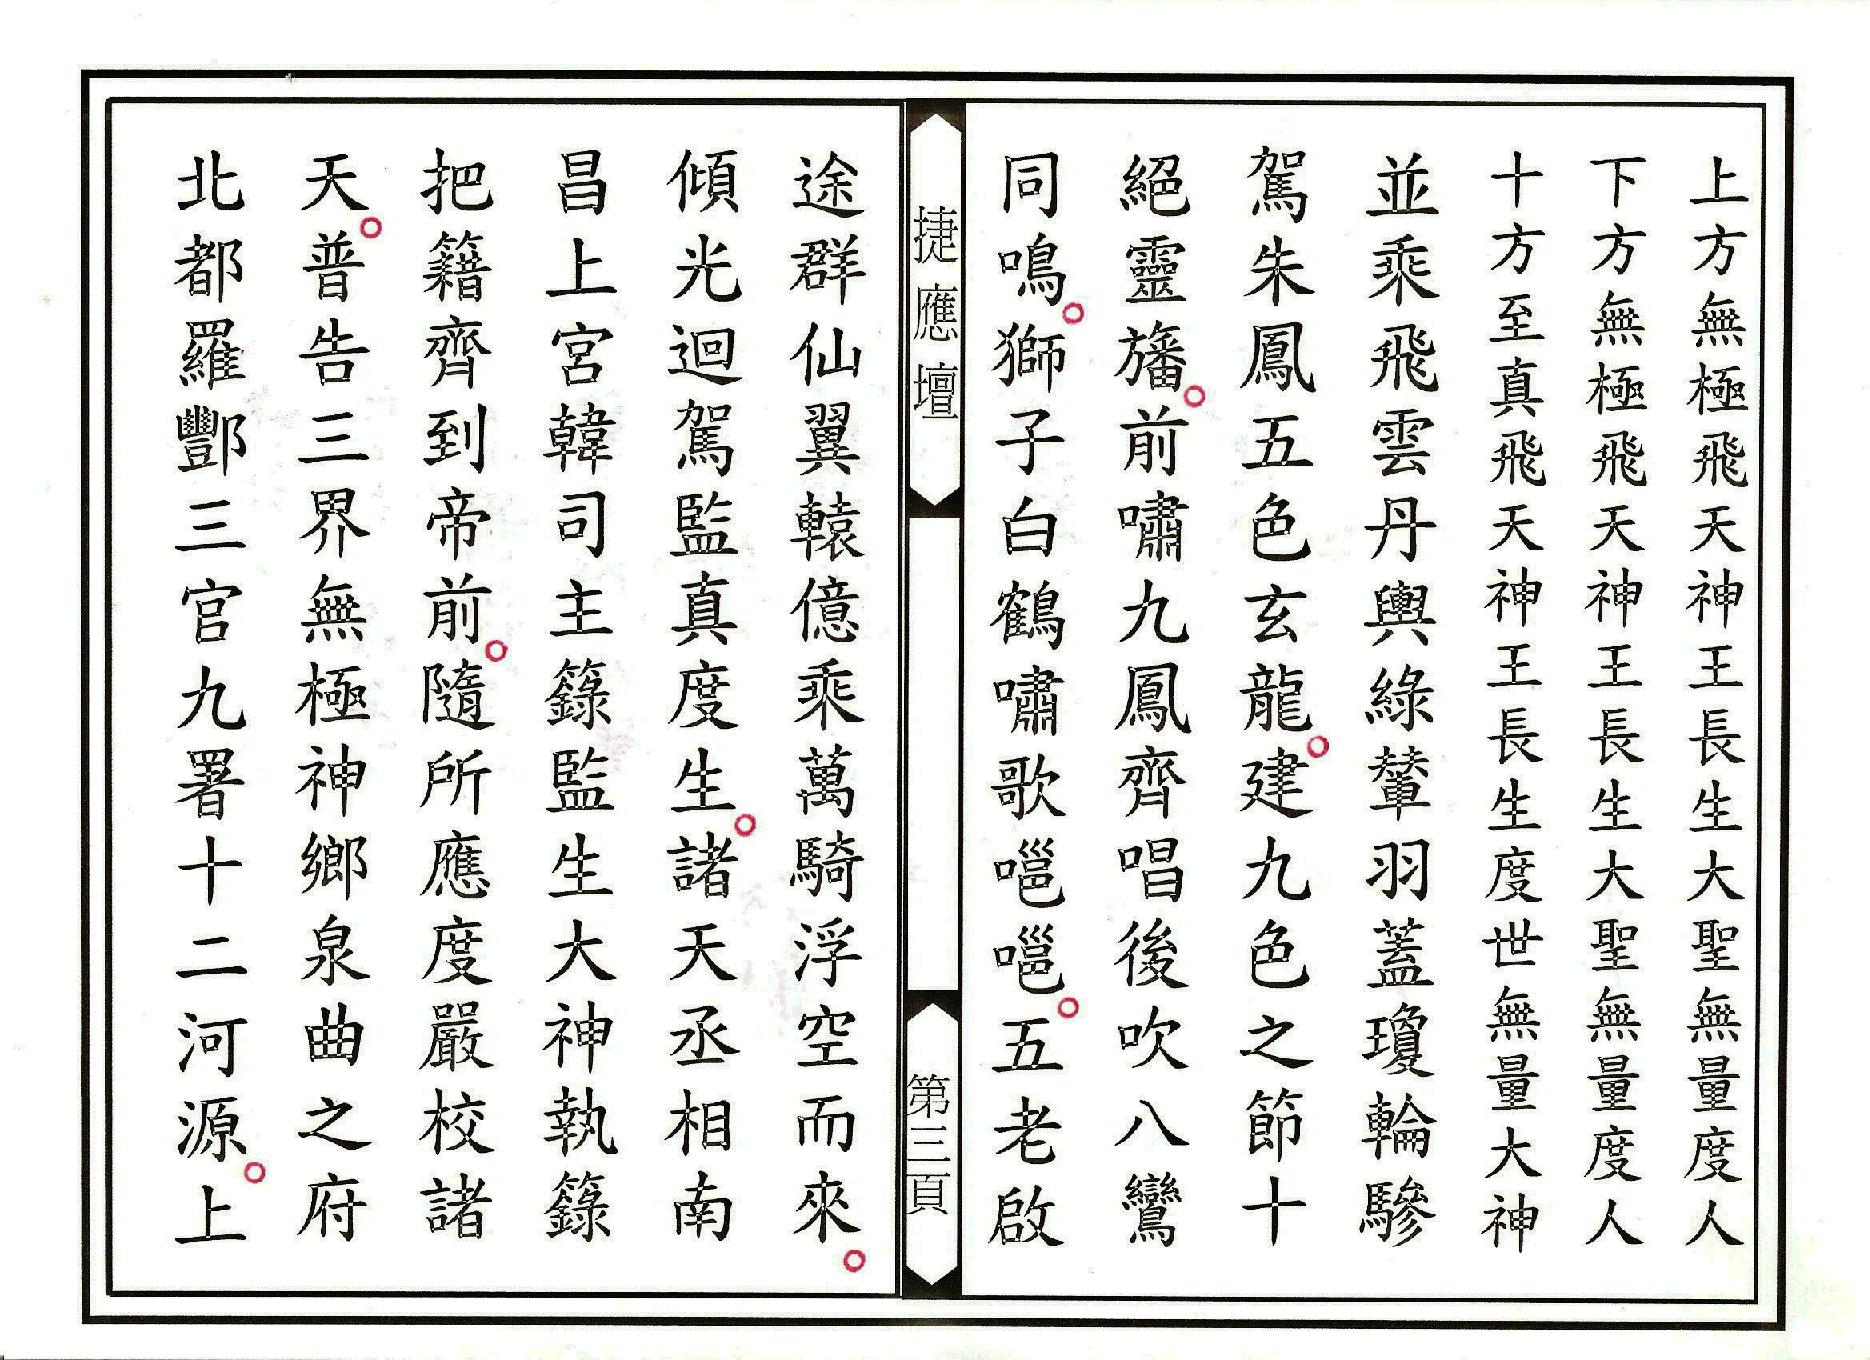 上方無極飛天神王長生大聖無量度人
下方無極飛天神王長生大聖無量度人
十方至真飛天神王長生度世無量大神
並乘飛雲丹輿綠輦羽蓋瓊輪驂
駕朱鳳五色玄龍。建九色之節十
絕靈旛。前嘯九鳳齊唱後吹八鸞
同鳴。獅子白鶴嘯歌嗈嗈。五老啟
捷應壇
第三頁
途群仙翼轅億乘萬騎浮空而來。
傾光迴駕監真度生。諸天丞相南
昌上宮韓司主籙監生大神執籙
把籍齊到帝前。隨所應度嚴校諸
天。普告三界無極神鄉泉曲之府
北都羅酆三官九署十二河源。上